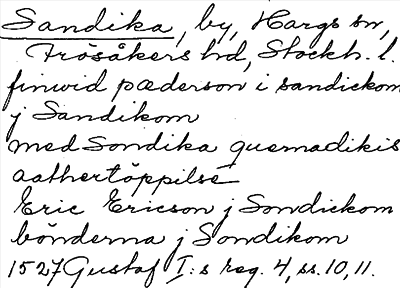 Sandika, by, Hargs sn,
Frösåkers hd, Stockh. l.
finwid pæderson i sandickom
j Sandikom
med Sondika quemadikis
aathertöppilse
Eric Ericson j Sondickom
bönderna j Sondikom
1527 Gustaf I:s reg. 4, ss. 10, 11.